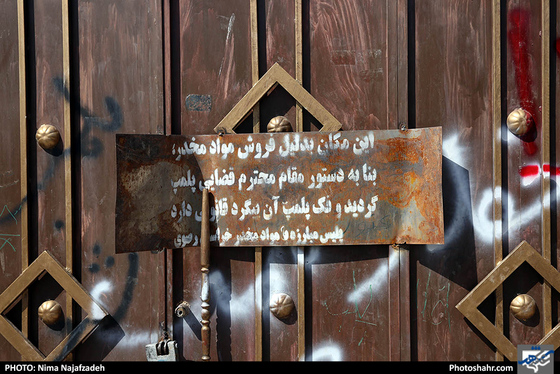 این مکان بدلیل فروش مواد مخدر،
بنا به دستور مقام محترم قضایی پلمپ
گردید و فک پلمپ آن پیگرد قانونی دارد
پلیس مبارزه با مواد مخدر خراسان رضوی
PHOTO: Nima Najafzadeh
Photoshahr.com